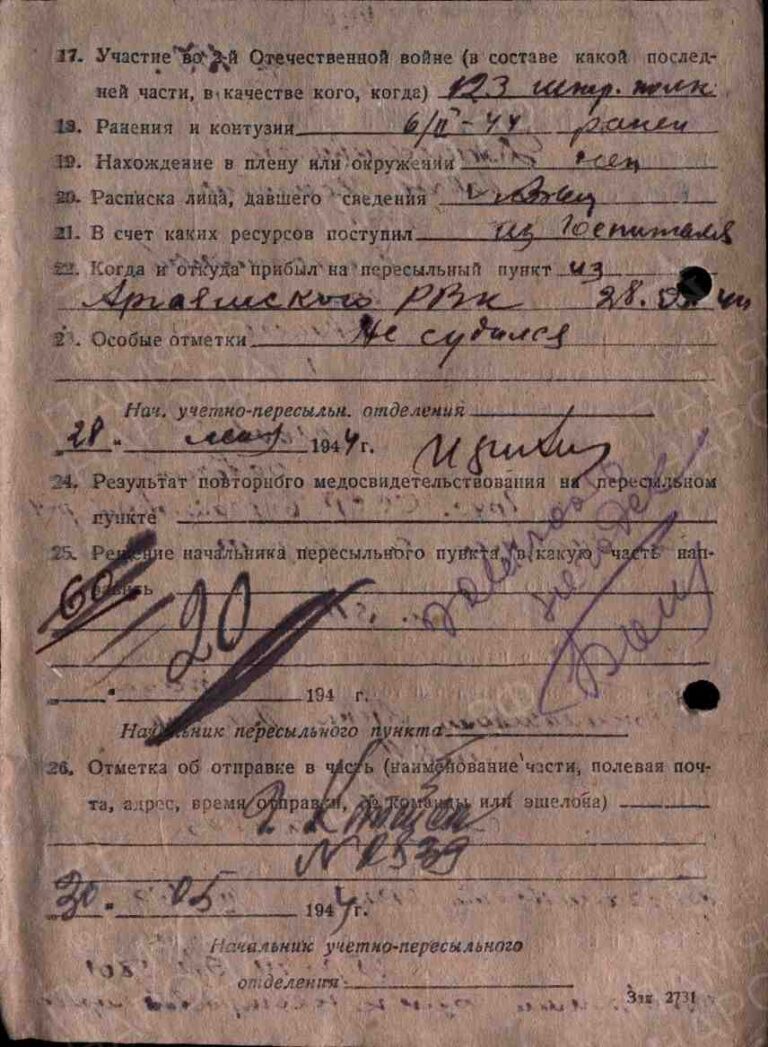 17. Участие во 2-й Отечественной войне (в составе какой послед-
ней части, в качестве кого, когда) 123 полк
18. Ранения и контузии 6/II-44 ранен
19. Нахождение в плену или окружении нет
20. Расписка лица, давшего сведения
21. В счет каких ресурсов поступил из Госпиталя
22. Когда и откуда прибыл на пересыльный пункт из
Аргаяшского РВК 28.
23. Особые отметки Не судился
Нач. учетно-пересыльн. отделения
28 " мая 1944 г.
24. Результат повторного медосвидетельствования на пересыльном
пункте
25. Решение начальника пересыльного пункта, в какую часть нап-
равить
60
20
" 194 г.
Начальник пересыльного пункта
26. Отметка об отправке в часть (наименование части, полевая поч-
та, адрес, время отправки, № команды или эшелона)
N
30 " 05 1944 г.
Начальник учетно-пересыльного
отделения
Зак 2731